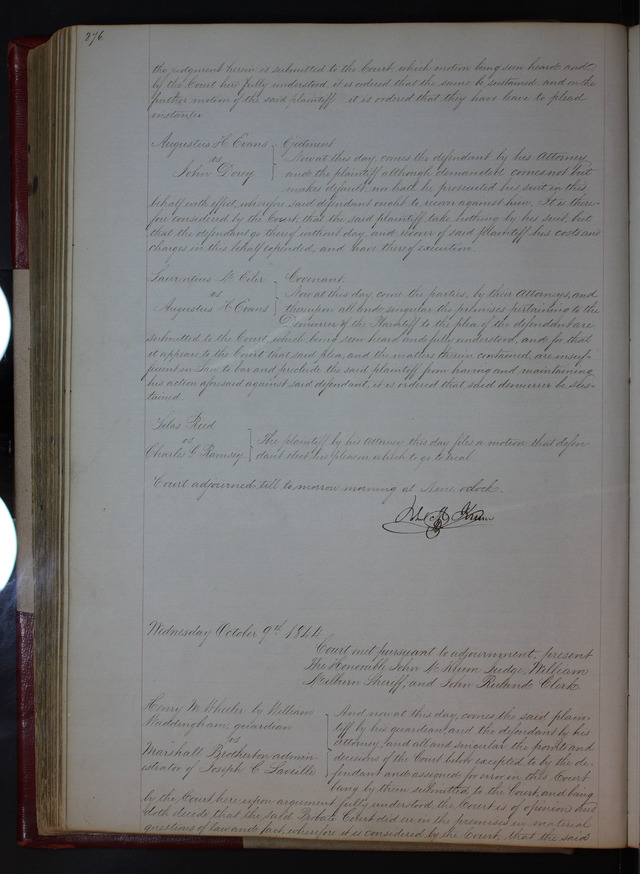 276
the judgment herein is submitted to the Court, which motion being seen heard and
by the Court here fully understood, it is ordered that the same be sustained and on the
further motion of the said plaintiff it is ordered that they have leave to plead
instanter
Augustus H Evans } Ejectment
vs } Now at this day, comes the defendant by his Attorney
John Dowy } and the plaintiff although demanded comes not but
makes default, nor hath he prosecuted his suit in this
behalf with effect, wherefore said defendant ought to recover against him. It is there-
fore considered by the Court, that the said plaintiff take nothing by his suit but
that the defendant go thereof without day, and recover of said plaintiff his costs and
charges in this behalf expended, and have thereof execution.
Laurentius M Eiler } Covenant
vs } Now at this day come the parties, by their Attorneys, and
Augustus H Evans } thereupon all and singular the premises pertaining to the
Demurrer of the Plaintiff to the plea of the defendant are
submitted to the Court, which being seen heard and fully understood, and for that
it appears to the Court that said plea, and the matters therein contained, are insuf-
ficient in Law to bar and preclude the said plaintiff from having and maintaining
his action aforesaid against said defendant, it is ordered that said demurrer be sus-
tained
Silas Reed
vs } The plaintiff by his Attorney this day files a motion that defen
Charles G Ramsey } dant elect his plea on which to go to trial
Court adjourned till to morrow morning at Nine oclock.
John M Krum
Wednesday October 9th 1844
Court met pursuant to adjournment, present
The Honorable John M Krum Judge, William
Milburn Sheriff, and John Ruland Clerk
Henry M Wheeler by William } And now at this day, comes the said plain-
Waddingham, guardian } tiff by his guardian, and the defendant by his
vs } attorney, and all and singular the points and
Marshall Brotherton admin } decisions of the Court below excepted to by the de-
istrator of Joseph C Laveille } fendant and assigned for error in this Court
being by them submitted to the Court, and being
by the Court here upon argument fully understood the Court is of opinion and
doth decide that the said Probate Court did err in the premises in material
questions of law and fact, wherefore it is considered by the Court, that the said